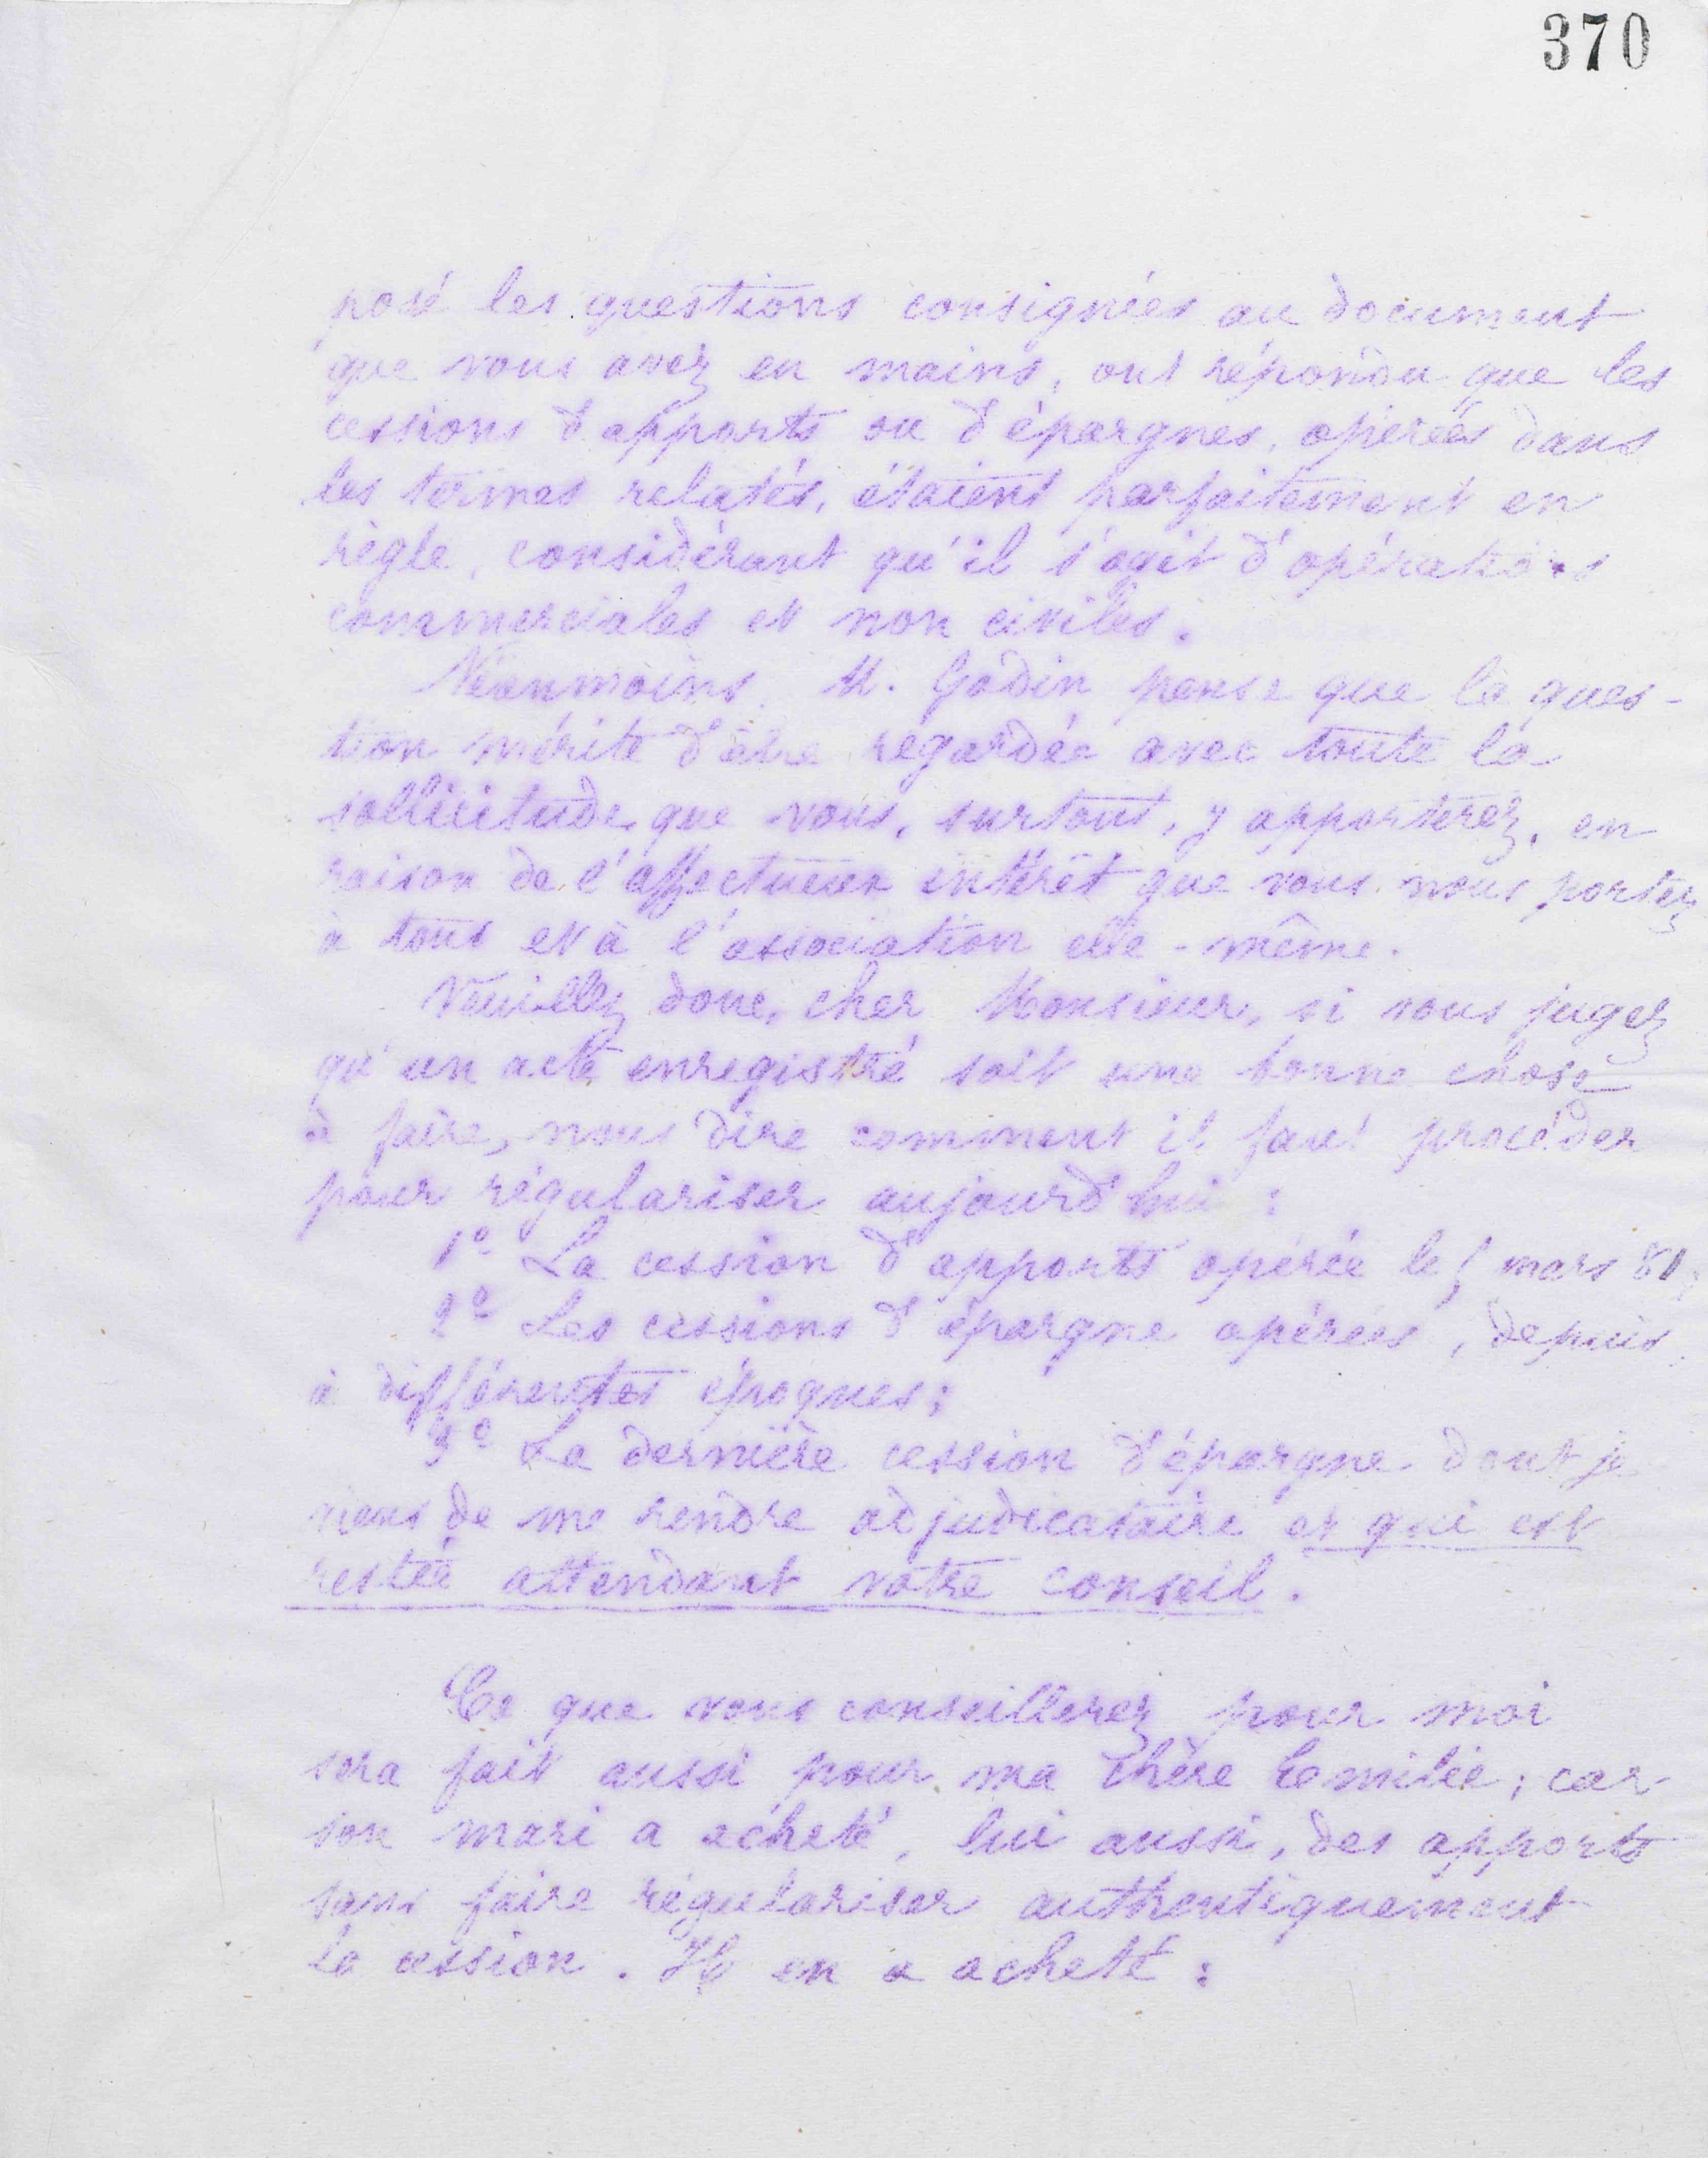 370
posé les questions consignées au document
que vous avez en mains, ont répondu que les
cessions d'apports ou d'épargnes, opérées dans
les termes relatés, étaient parfaitement en
règle, considérant qu'il s'agit d'opérations
commerciales et non civiles.
Néanmoins, M. Godin pense que la ques-
tion mérite d'être regardée avec toute la
sollicitude que vous, surtout, y apporterez, en
raison de l'affectueux intérêt que vous nous portez
à tous et à l'association elle-même.
Veuillez donc, cher Monsieur, si vous jugez
qu'un acte enregistré soit une bonne chose
à faire, nous dire comment il faut procéder
pour régulariser aujourd'hui :
1º La cession d'apports opérée le 5 mars 81,
2º Les cessions d'épargne opérées, depuis,
à différentes époques ;
3º La dernière cession d'épargne dont je
viens de me rendre adjudicataire et qui est
restée attendant votre conseil.
Ce que vous conseillerez pour moi
sera fait aussi pour ma chère Emilie ; car
son mari a acheté, lui aussi, des apports
sans faire régulariser authentiquement
la cession. Il en a acheté :